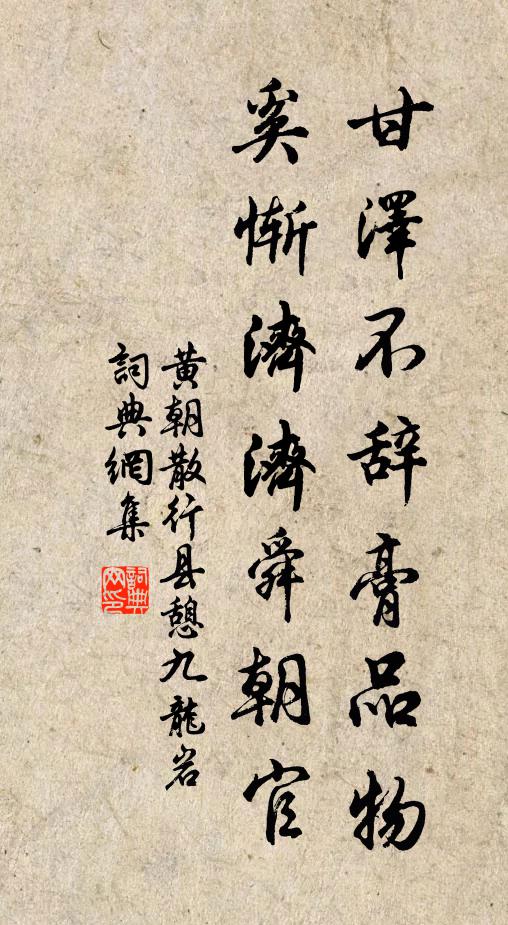 甘澤不辞膏品物
奚慚濟濟舜朝官
黄朝散行县憩九龍岩
詞典網集
詞典網印